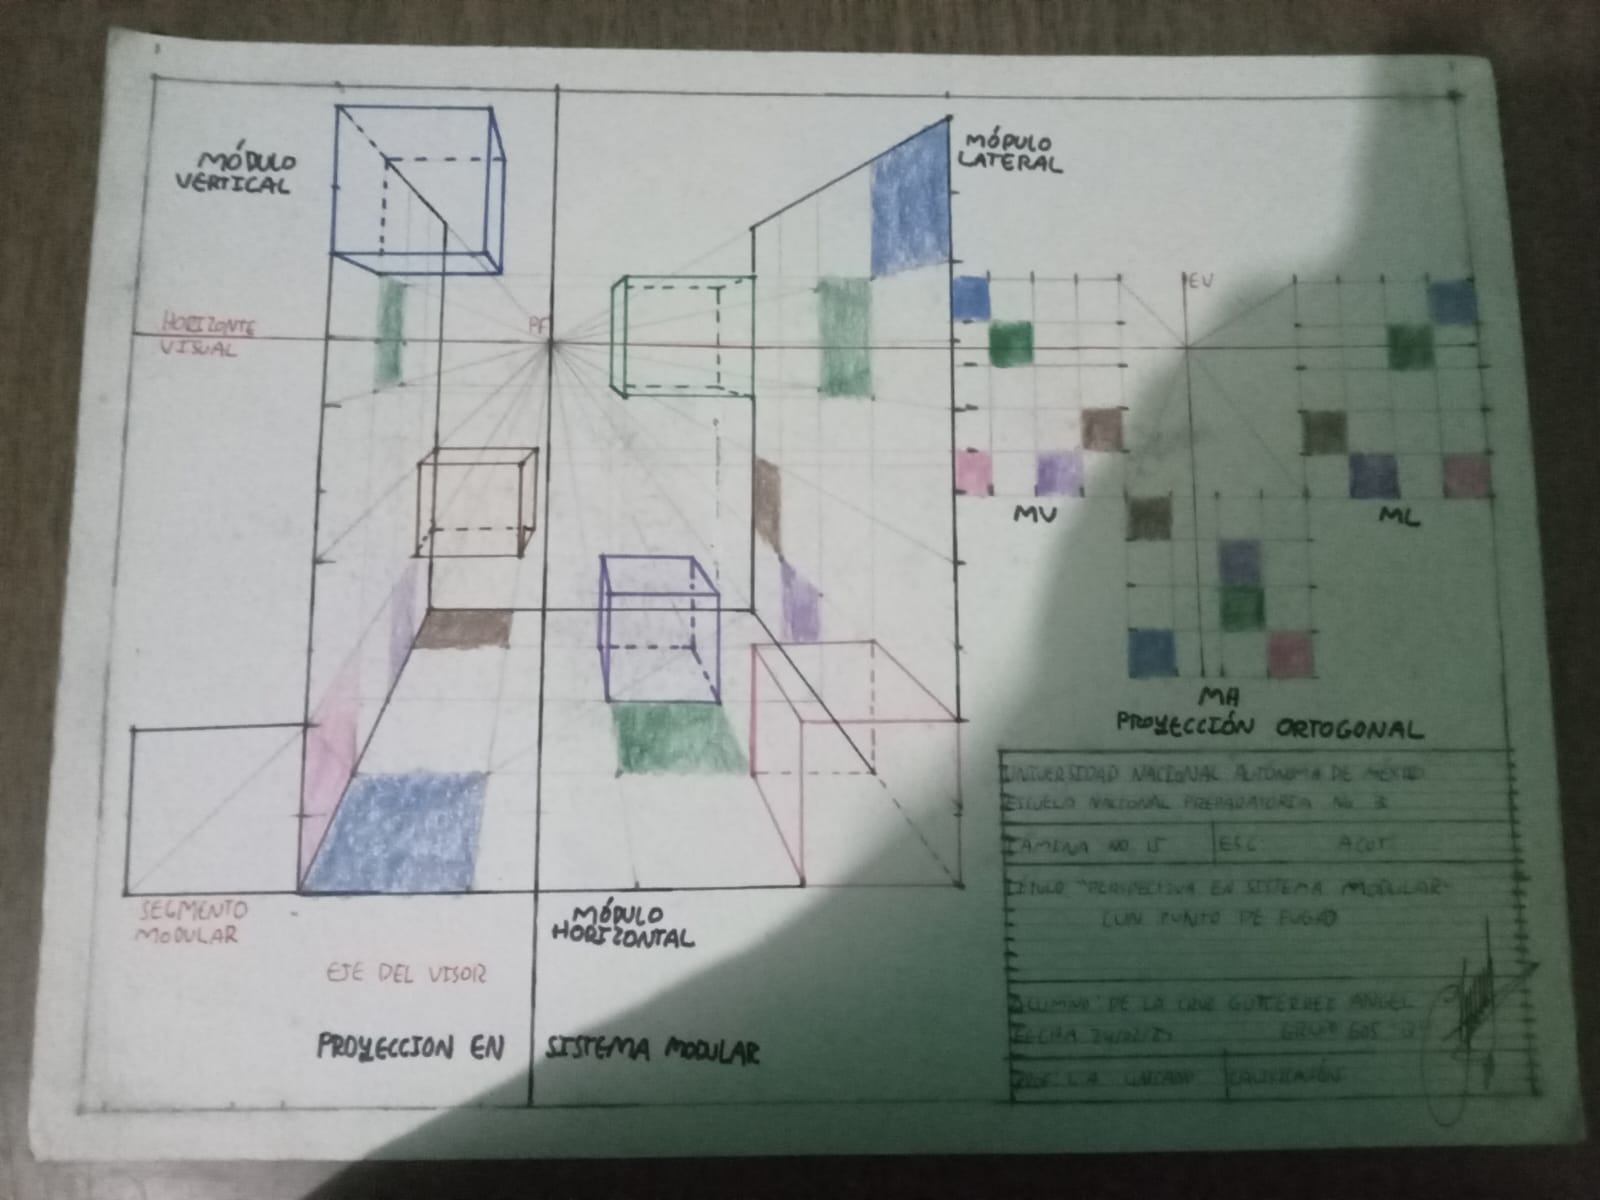 MÓDULO
VERTICAL
MÓDULO
LATERAL
HORIZONTE
VISUAL
PF
EV
MV
ML
MA
PROYECCIÓN ORTOGONAL
SEGMENTO
MODULAR
MÓDULO
HORIZONTAL
EJE DEL VISOR
PROYECCION EN SISTEMA MODULAR
UNIVERSIDAD NACIONAL AUTÓNOMA DE MÉXICO
ESCUELA NACIONAL PREPARATORIA No 3
LAMINA NO. 15 ESC: ACOT:
TITULO "PERSPECTIVA EN SISTEMA MODULAR
CON PUNTO DE FUGA"
ALUMNO: DE LA CRUZ GUTIERREZ ANGEL
FECHA GRUPO 605
PROF. L.A. CALIFICACIÓN